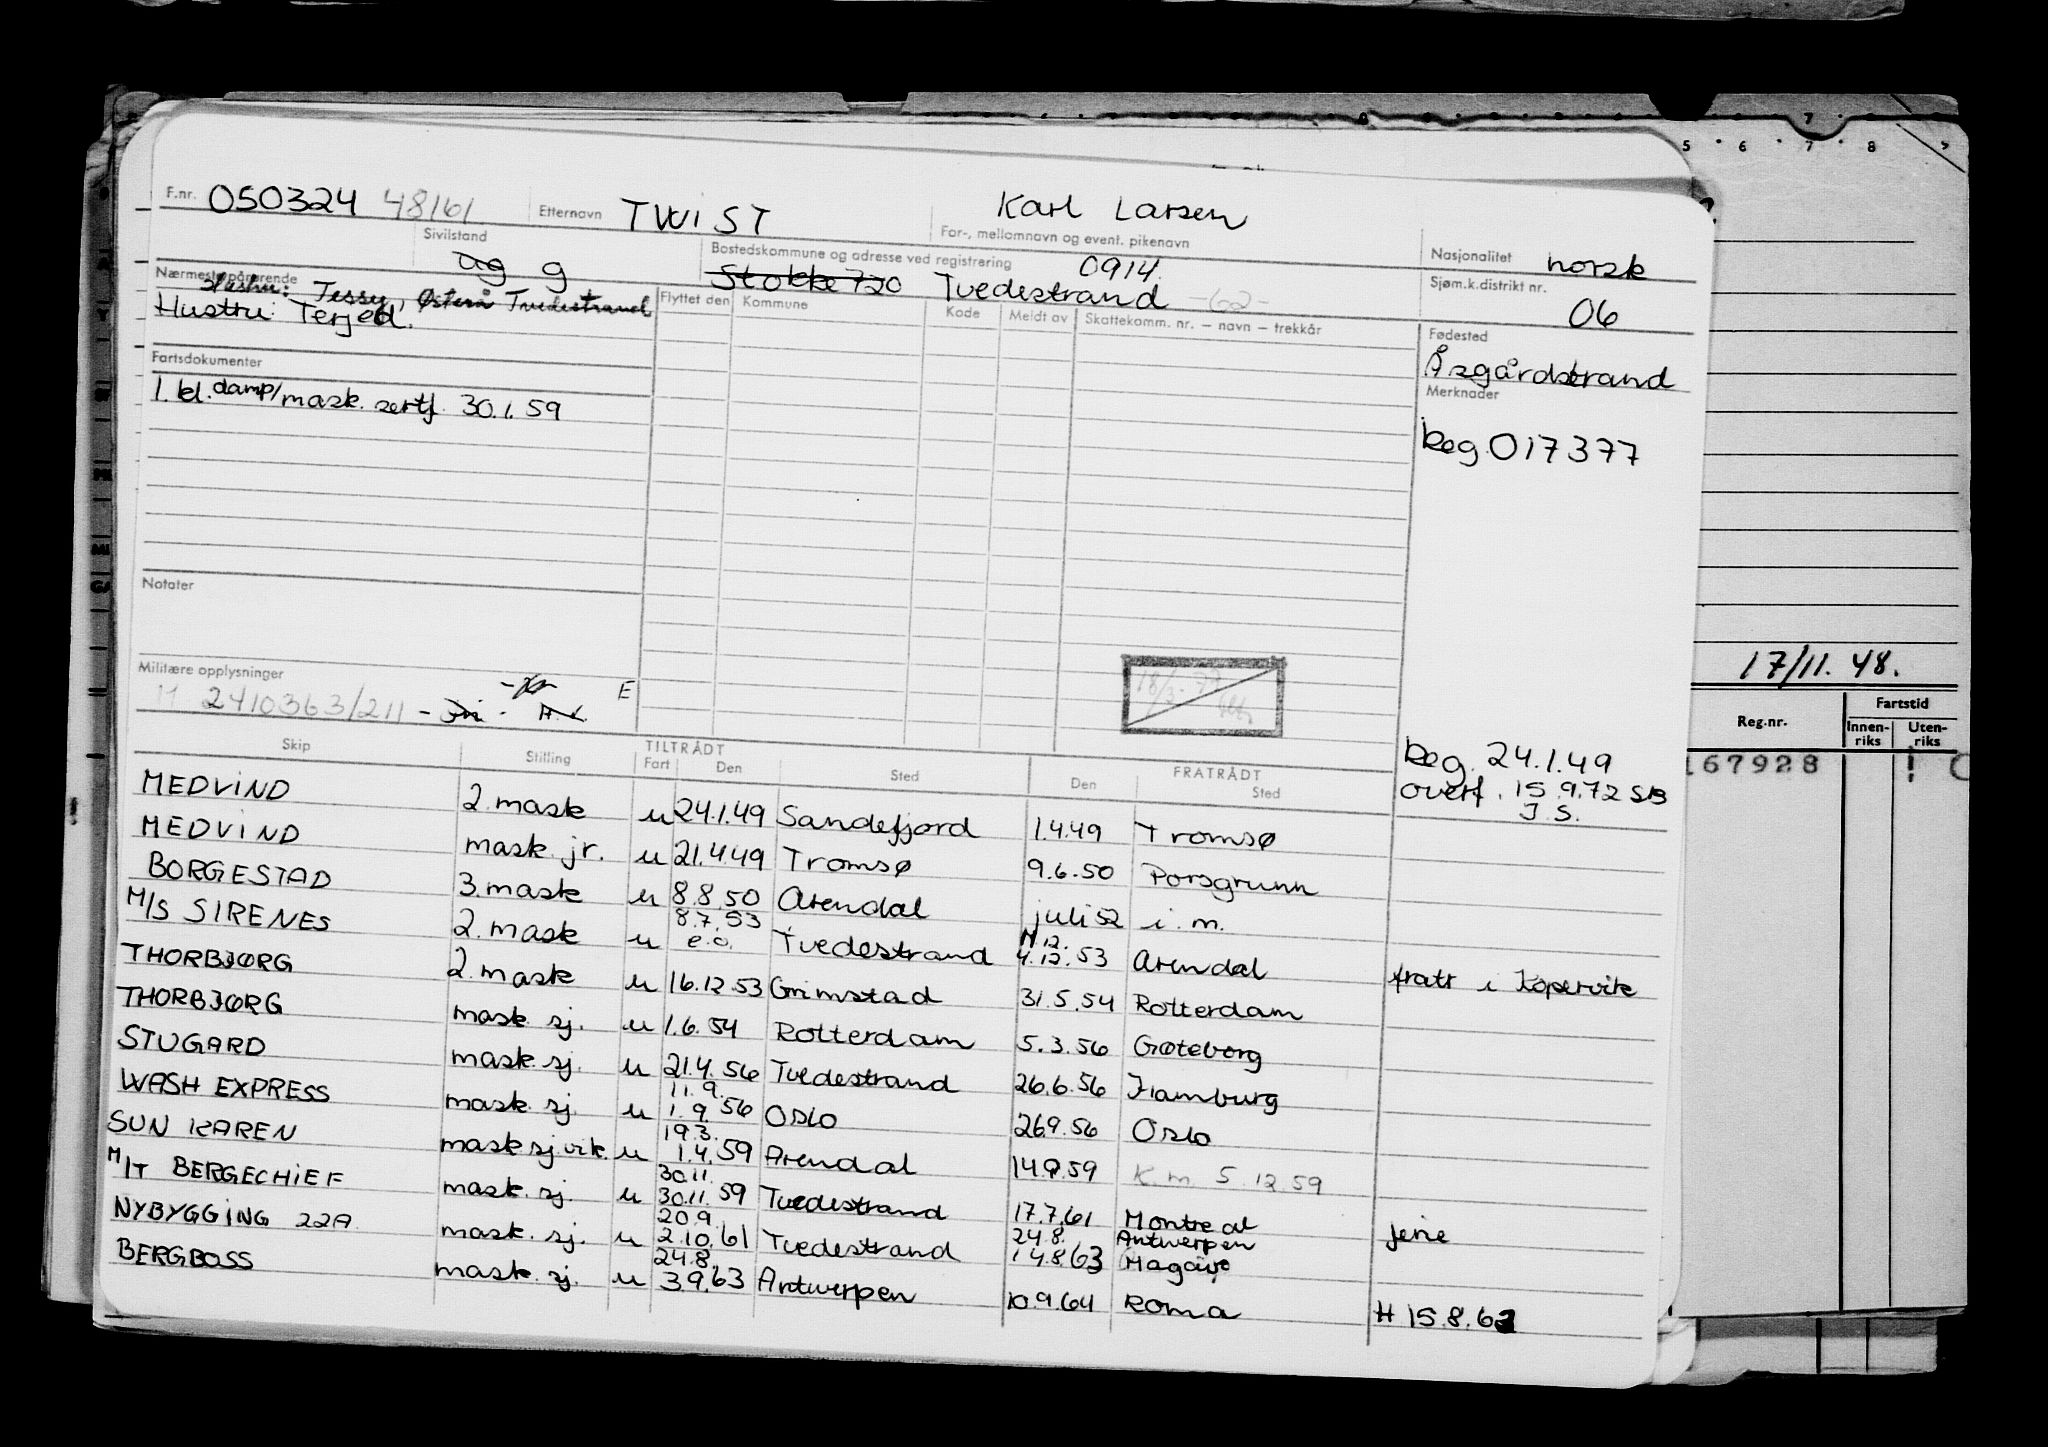 F.nr. 050324 48161 Etternavn TWIST Karl Larsen
For-, mellomnavn og event. pikenavn
Sivilstand ug g
Bostedskommune og adresse ved registrering 0914
Stokke 720 Tvedestrand -62-
Nasjonalitet norsk
Sjøm.k.distrikt nr. 06
Nærmeste pårørende
Hustru: Jessy, Østerå Tvedestrand
Hustru: Terjed.
Flyttet den Kommune Kode Meldt av Skattekomm. nr. — navn — trekkår
Fødested
Åsgårdstrand
Fartsdokumenter
1. kl. damp/mask. sertf. 30.1.59
Merknader
beg. 017377
Notater
Militære opplysninger
M 2410363/211 E
18/3. 77
beg. 24.1.49
overf. 15.9.72 SB
J.S.
Skip Stilling TILTRÅDT Fart Den Sted FRATRÅDT Den Sted
MEDVIND 2. mask u 24.1.49 Sandefjord 1.4.49 Tromsø
MEDVIND mask jr. u 21.4.49 Tromsø 9.6.50 Porsgrunn
BORGESTAD 3. mask u 8.8.50 Arendal juli 52 i.m.
M/S SIRENES 2. mask u 8.7.53 e.o. Tvedestrand 4.12.53 Arendal fratr i Kopervik
THORBJØRG 2. mask u 16.12.53 Grimstad 31.5.54 Rotterdam
THORBJØRG mask. sj. u 1.6.54 Rotterdam 5.3.56 Gøteborg
STUGARD mask. sj. u 21.4.56 Tvedestrand 26.6.56 Hamburg
WASH EXPRESS mask. sj. u 11.9. 1.9.56 Oslo 26.9.56 Oslo
SUN KAREN mask sj. vik. u 19.3. 1.4.59 Arendal 14.9.59 K.m. 5.12.59
M/T BERGECHIEF mask. sj. u 30.11. 30.11.59 Tvedestrand 17.7.61 Montreal
NYBYGGING 22A mask. sj. u 20.9. 2.10.61 Tvedestrand 24.8. 14.8.63 Antwerpen
BERGBOSS mask. sj. u 24.8. 3.9.63 Antwerpen 10.9.64 Roma H 15.8.63
5 6 7 8
17/11. 48.
Reg.nr. Fartstid
Innen-riks Uten-riks
167928